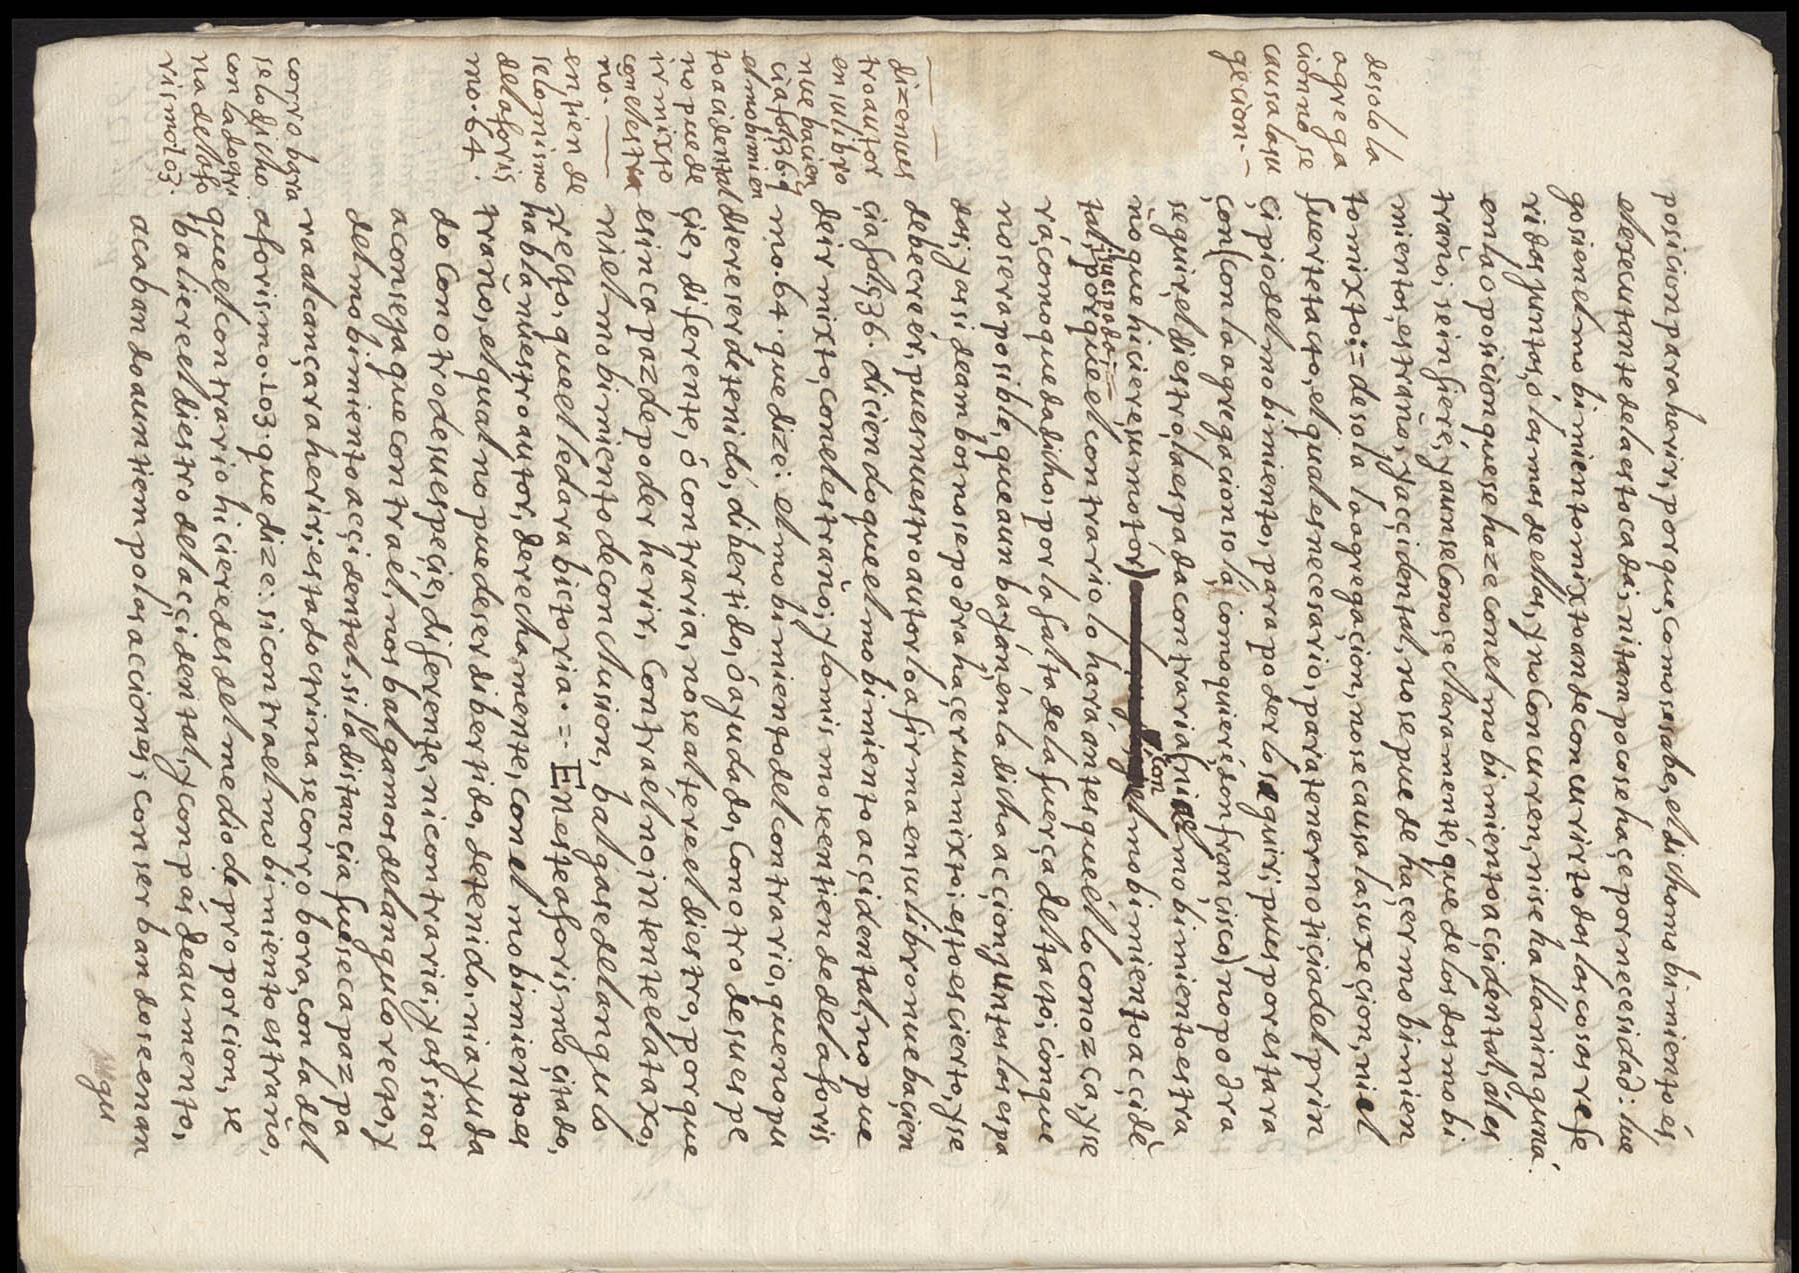 posicion para herir, porque, como se sabe, el dicho mobimiento és,
el executante de la estocada; ni tampoco se haçe por necesidad: lue
go si en el mobimiento mixto an de concurir todas las cosas refe
ridas juntas, ó las mas dellas, y no concuren, ni se halla ninguna
en la oposicion que se haze con el mobimiento accidental, ál es
traño; se infiere, y aun se conoçe claramente, que de los dos mobi
mientos, estraño, y accidental, no se puede haçer mobimien
to mixto: = de sola la agregacion, no se causa la suxeçion, ni el
fuerte tacto, el qual es necesario, para tener notiçia del prin
çipio del mobimiento, para poderlo seguir; pues por esta ra
çon (con la agregacion sola, como quiere don françisco) no podra
seguir el diestro, la espada contraria, ni el mobimiento estra
ño que hiciere su motor)
con
el mobimiento accidē
tal,
su espada; =
porque el contrario lo hará antes que él lo conozca, y se
rá, como queda dicho, por la falta de la fuerça del tacto; con que
no sera posible, que aun bajánen la dicha accion juntas las espa
das; y assi de ambos no se podra haçer un mixto: esto es cierto, y se
debe creér, pues nuestro autor lo afirma en su libro nueba çien
cia fol. 536. diciendo que el mobimiento accidental, no pue
de ir mixto, con el estraño; y lo mismo se entiende del aforis
mo. 64. que dize: el mobimiento del contrario, que no pu
diere ser detenido, dibertido, ó ayudado, con otro de su espe
çie, diferente, ó contraria, no se altere el diestro, porque
es incapaz de poder herir, contra él no intente el ataxo,
ni el mobimiento de conclusion, balgase del angulo
recto, que el le dara bictoria. = En este aforismo çitado,
habla nuestro autor, derechamente, con el mobimiento es
traño, el qual no puede ser dibertido, detenido, ni ayuda
do con otro de su espeçie, diferente, ni contraria; y assi nos
aconseja que contra el, nos balgamos del angulo recto, y
del mobimiento accidental, si la distançia fuese capaz pa
ra alcançar a herir; esta doctrina se corrobora, con la del
aforismo. 103. que dize: si contra el mobimiento estraño,
que el contrario hiciere desde el medio de proporcion, se
baliere el diestro del accidental, y compás de aumento,
acaban do a un tiempo las acciones, conserbandose en an
gu
de sola la
agrega
cion no se
causa la su
geçion. —
dize nues
tro autor
en su libro
nueba cien
cia fol. 536. q̃
el mobimien
to acidental
no puede
ir mixto
con el estra
ño. —
entiende
se lo mismo
del aforis
mo. 64.
corrobora
se lo dicho
con la doctri
na del afo
rismo 103.